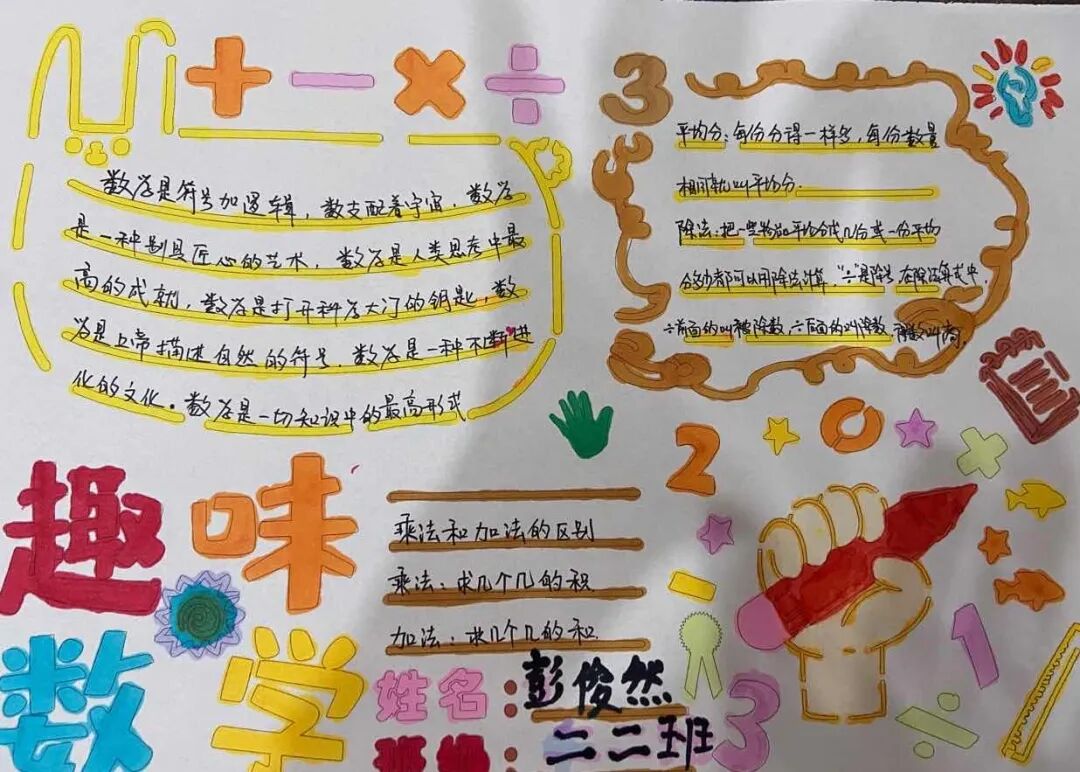 + - × ÷
数学是符号加逻辑，数支配着宇宙，数学
是一种别具匠心的艺术，数学是人类思考中最
高的成就，数学是打开科学大门的钥匙，数
学是上帝描述自然的符号，数学是一种不断进
化的文化。数学是一切知识中的最高形式
3
平均分：每份分得一样多，每份数量
相同就叫平均分.
除法：把一些物品平均分成几份或一份平均
分多少都可以用除法计算，"÷"是除号 在除法算式中，
÷前面的叫被除数，÷后面的叫除数，
趣味
数学
乘法和加法的区别
乘法：求几个几的积
加法：求几个几的和.
姓名：彭俊然
班级：二二班
2
3
1
÷